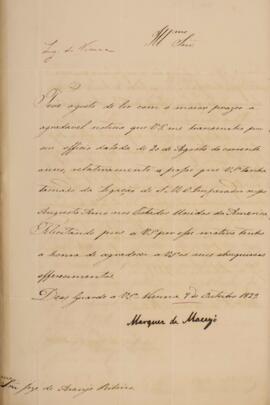 Illmo
Snr
Leg. de Vienna
gosto de ler com o maior prazer a
agradavel noticia que VSa me transmitio por
seu officio datado de 20 de Agosto do corrente
anno, relativamente a posse que VSa tinha
tomado da Legação de S. M. O Imperador
Augusto Amo nos Estados Unidos da America.
Felicitando pois a VSa por esse motivo tenho
a honra de agradecer a VSa os seus obsequiosos
offerecimentos.
Deos Guarde a VSa Vienna 9 de Outubro 1829
Marquez de Maceyó
Snr Joze de Araujo Ribeiro